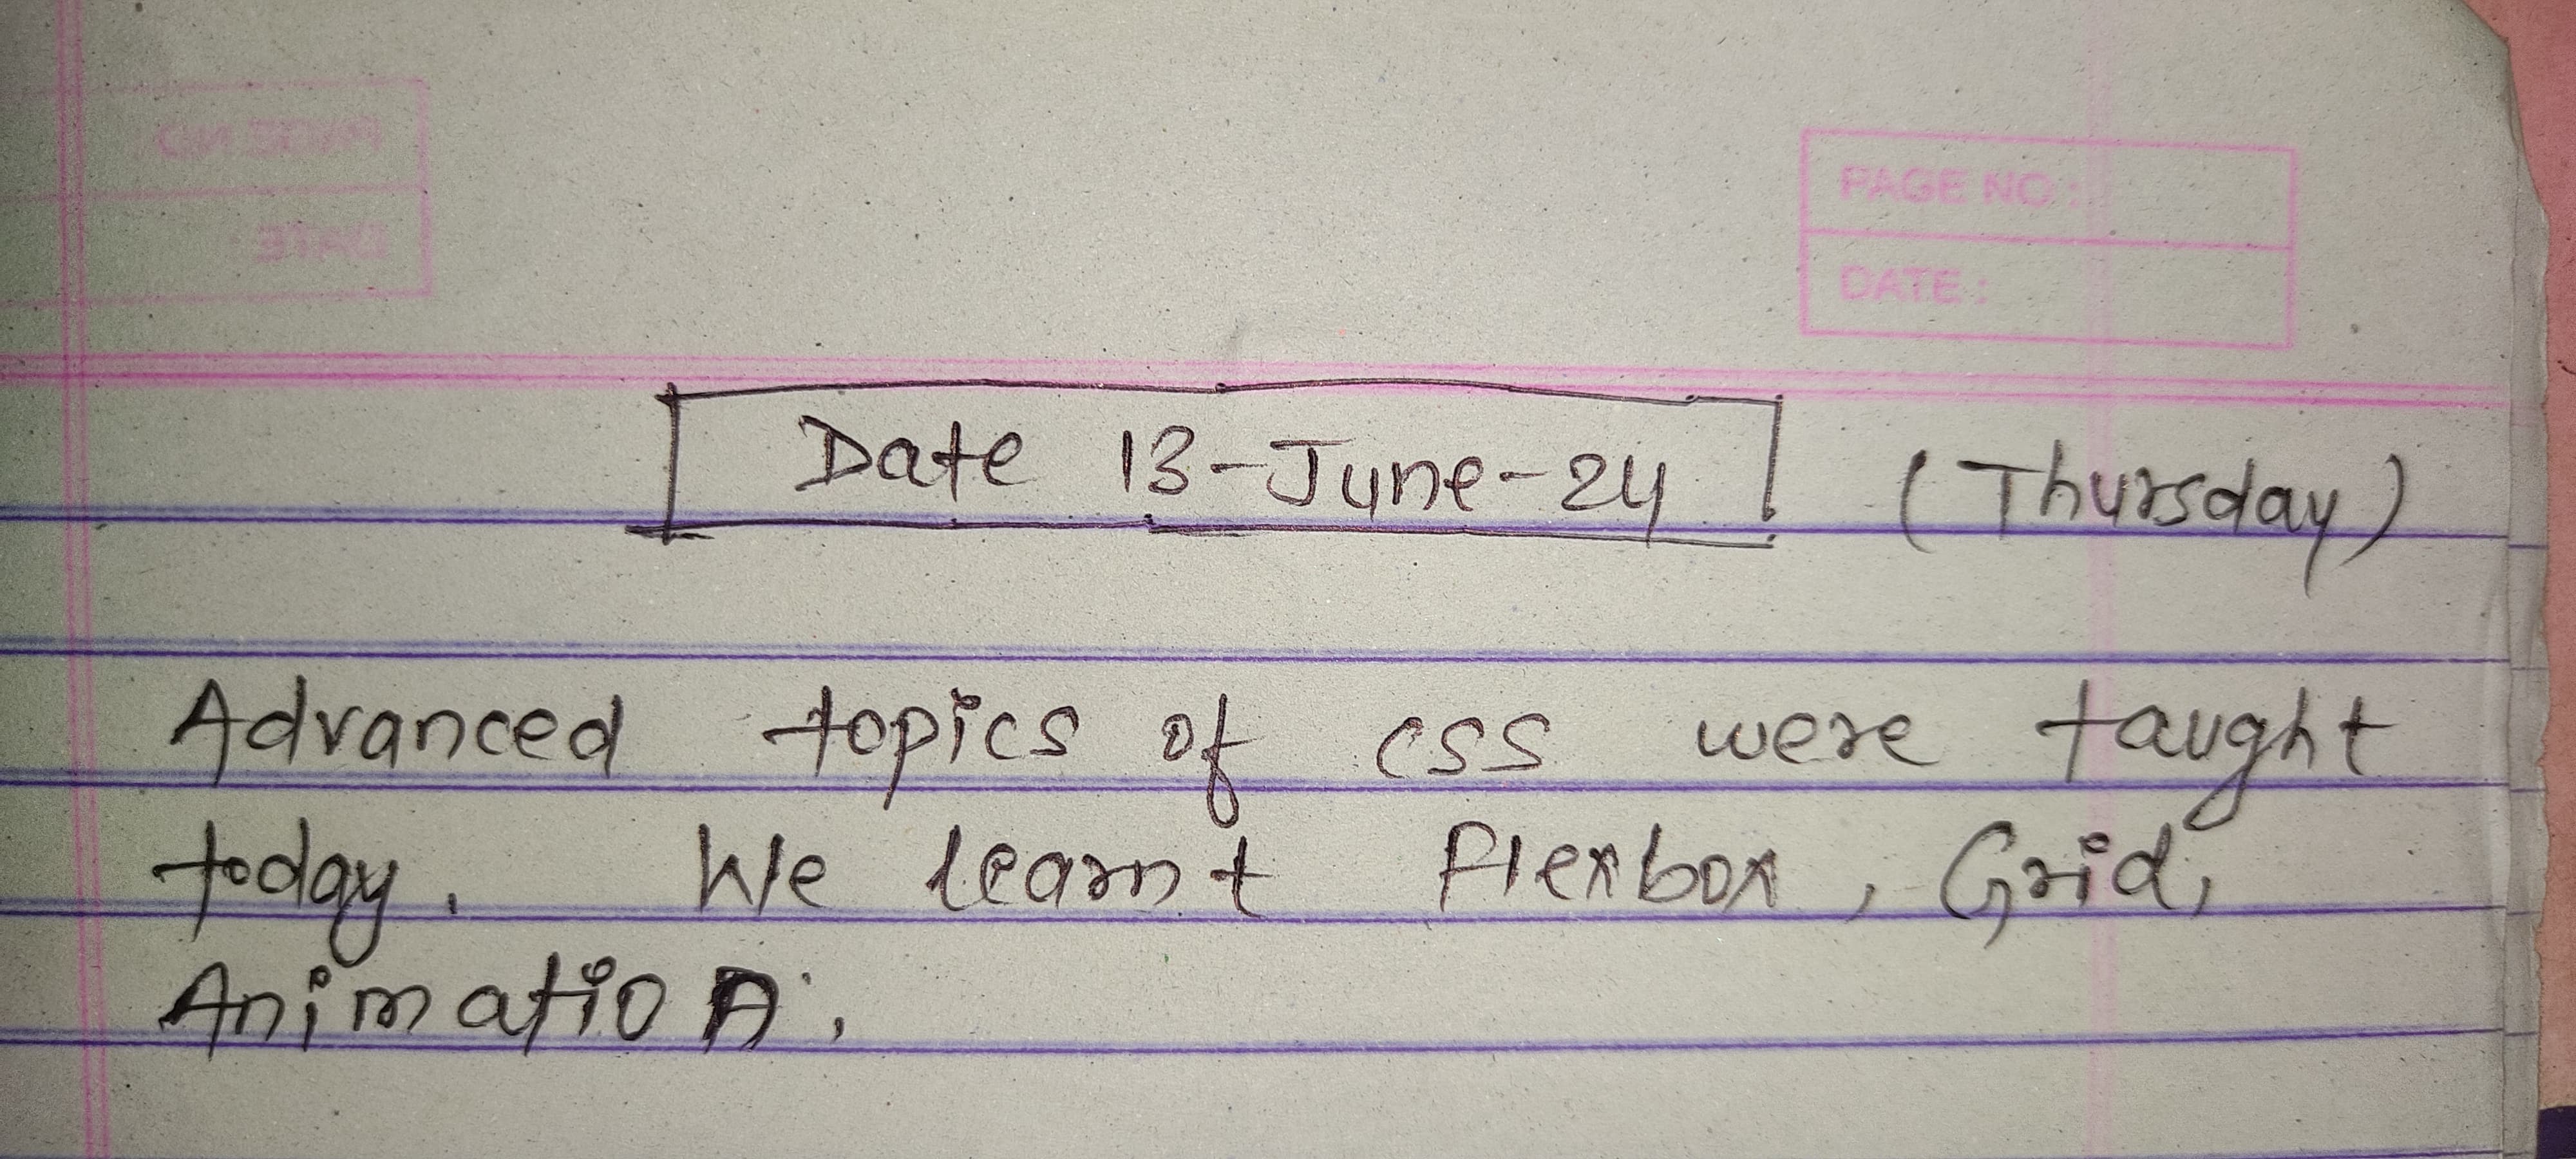 PAGE NO :
DATE :
Date 13-June-24 (Thursday)
Advanced topics of css were taught
today. We learnt flexbox, Grid,
Animation.